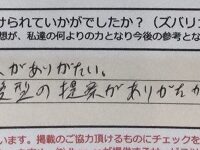 けられていかがでしたか？（ズバリ
想が、私達の何よりの力となり今後の参考とな
がありがたい。
型の提案がありがたか
います。掲載のご協力頂けるものにチェックを